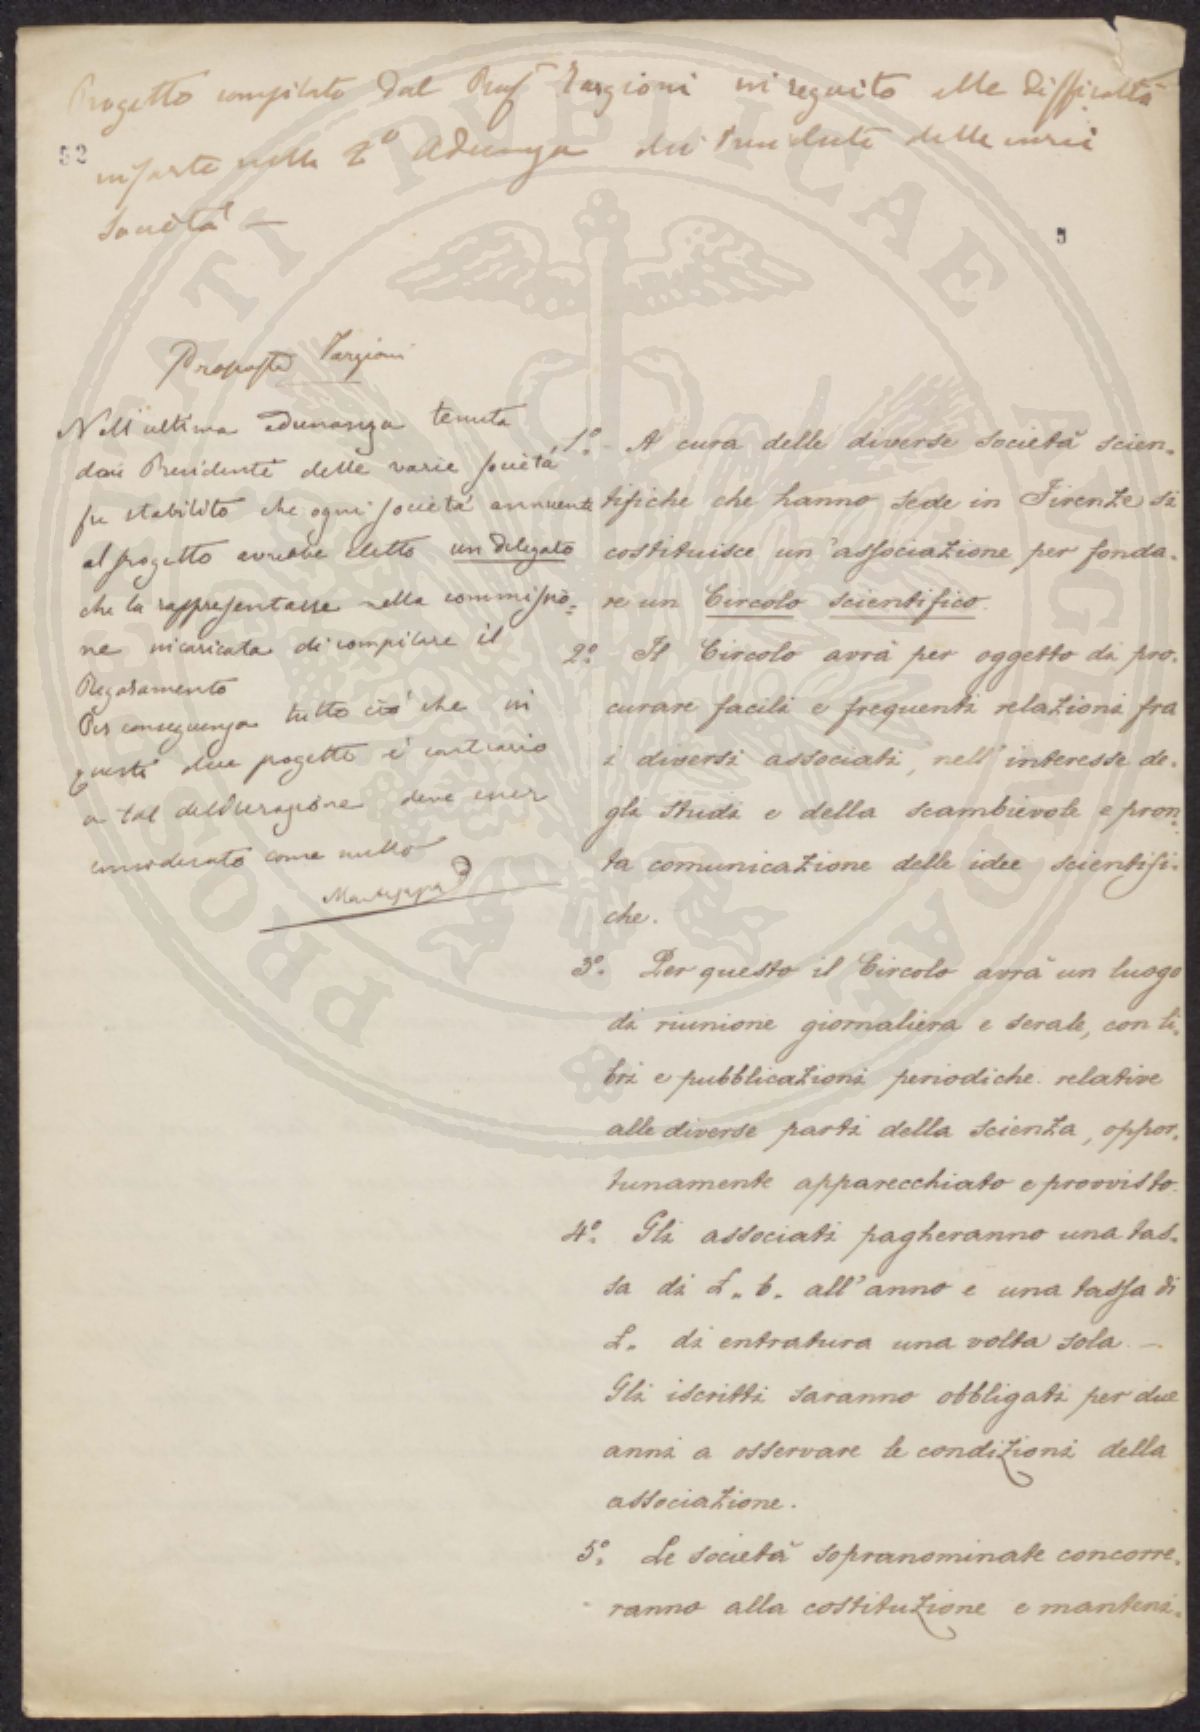 Progetto compilato dal Prof Targioni in seguito alle difficoltà
52
insorte nella 2ª Adunza dei Presidenti delle varie
Società —
5
Proposta Targioni
Nell'ultima adunanza tenuta
dai Presidenti delle varie società
fu stabilito che ogni società annuente
al progetto avrebbe eletto un delegato
che la rappresentasse nella commissio=
ne incaricata di compilare il
Regolamento
Per conseguenza tutto ciò che in
questo progetto è contrario
a tal deliberazione deve esser
considerato come nullo
1º. - A cura delle diverse società scien-
tifiche che hanno sede in Firenze si
costituisce un'associazione per fonda-
re un Circolo scientifico.
2º. Il Circolo avrà per oggetto di pro-
curare facili e frequenti relazioni fra
i diversi associati, nell'interesse de-
gli studi e della scambievole e pron-
ta comunicazione delle idee scientifi-
che.
3º. Per questo il Circolo avrà un luogo
di riunione giornaliera e serale, con li-
bri e pubblicazioni periodiche relative
alle diverse parti della scienza, oppor-
tunamente apparecchiato e provvisto.
4º. Gli associati pagheranno una tas-
sa di L. 6. all'anno e una tassa di
L. di entratura una volta sola. —
Gli iscritti saranno obbligati per due
anni a osservare le condizioni della
associazione.
5º. Le società sopranominate concorre-
ranno alla costituzione e manteni-
PROSPERITATI PUBLICAE AUGENDAE